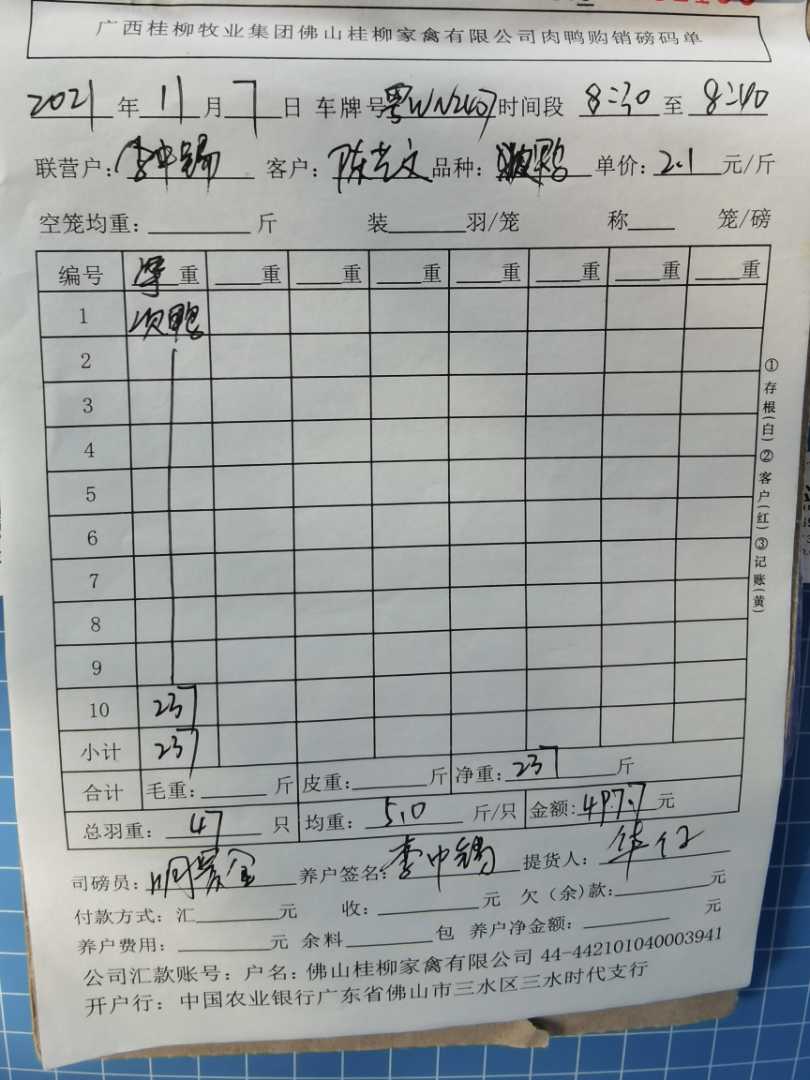 广西桂柳牧业集团佛山桂柳家禽有限公司肉鸭购销磅码单
2021年11月7日 车牌号粤WN2407时间段 8:30至 8:40
联营户:李中锡 客户:陈艺文 品种: 单价:2.1元/斤
空笼均重: 斤 装 羽/笼 称 笼/磅
编号 净重 重 重 重 重 重 重 重
1 次鸭
2
3
4
5
6
7
8
9
10 237
小计 237
合计 毛重: 斤 皮重: 斤 净重:237斤
总羽重:47只 均重:5.0斤/只 金额:497.7元
司磅员: 养户签名:李中锡 提货人:
付款方式:汇 元 收: 元 欠(余)款: 元
养户费用: 元 余料 包 养户净金额: 元
公司汇款账号:户名:佛山桂柳家禽有限公司 44-442101040003941
开户行:中国农业银行广东省佛山市三水区三水时代支行
①存根(白)②客户(红)③记账(黄)